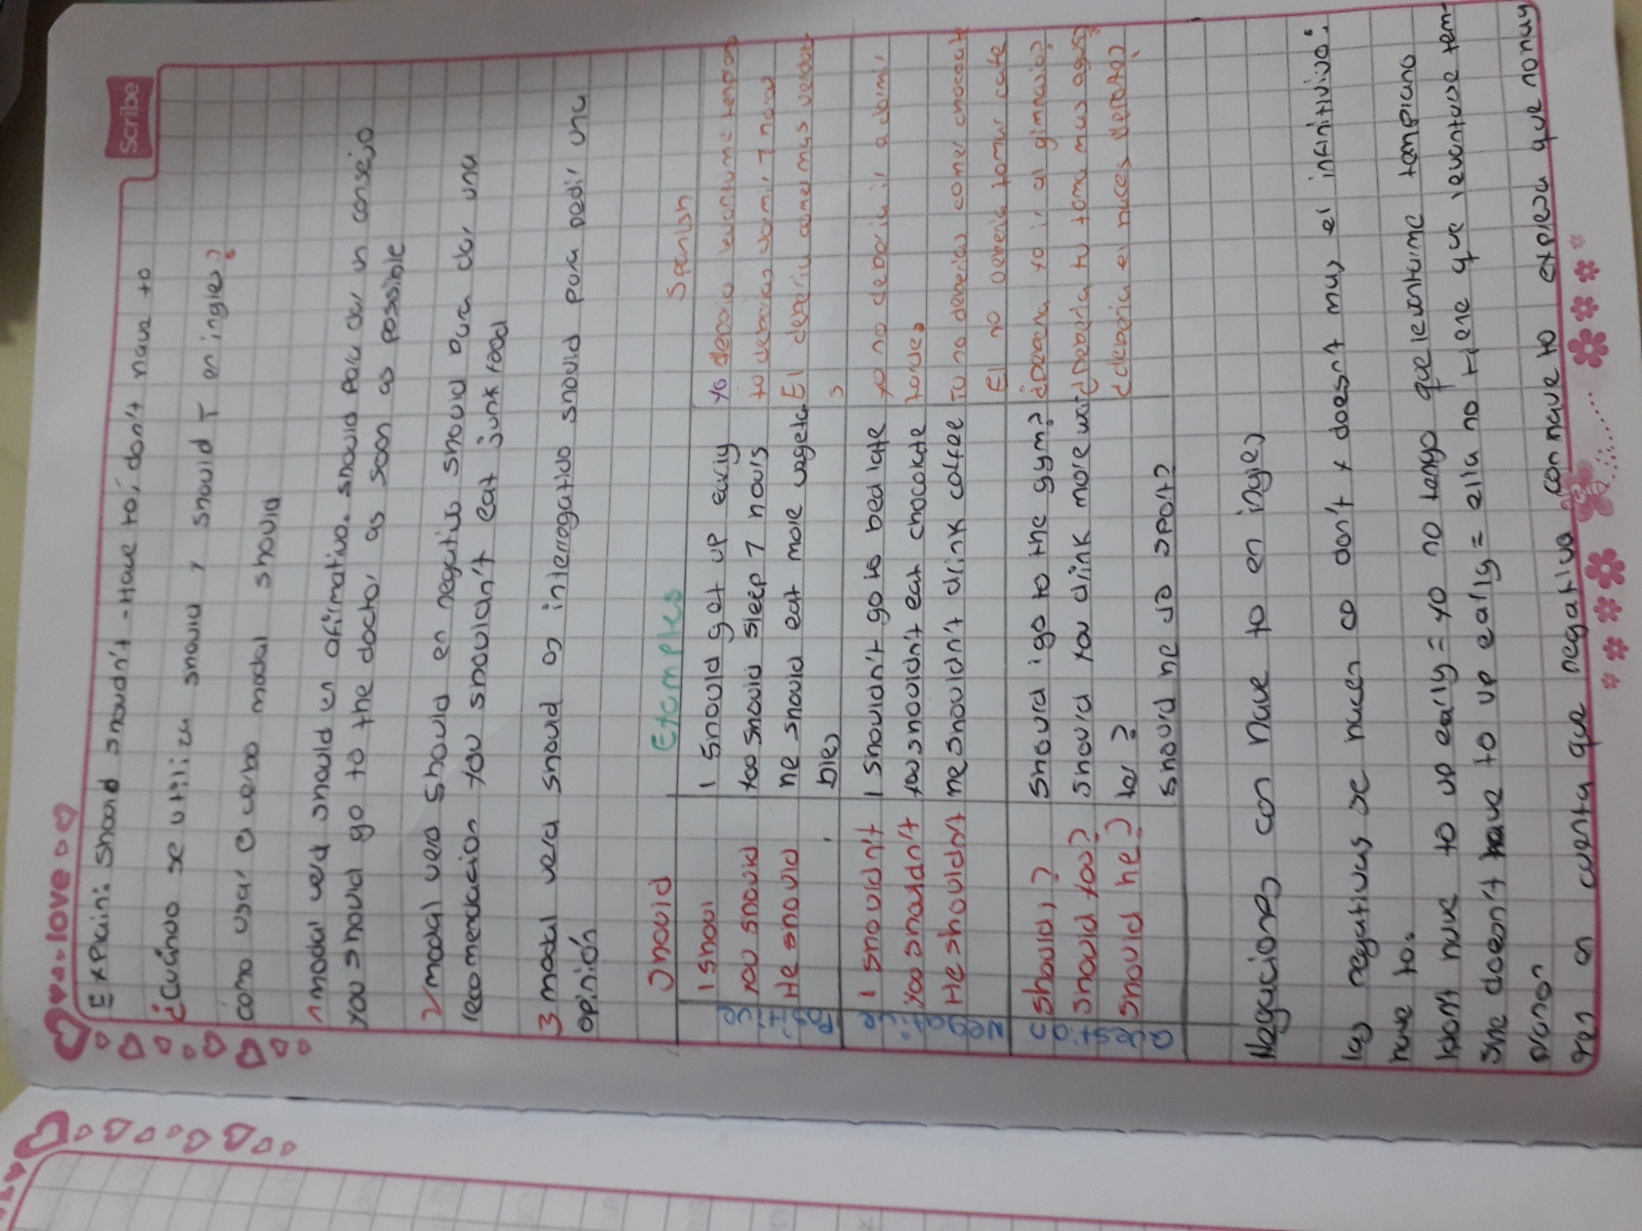 Scribe
love
Explain: Should shouldn't - Have to, don't have to
¿Cuándo se utiliza should y should I en ingles?
como usar el verbo modal should
1 modal verd should en afirmativo. should para dar un consejo
you should go to the doctor as soon as possible
2 modal verd should en negativo should para dar una
recomendacion you shouldn't eat junk food
3 modal verd should as interrogatido should para pedir una
opinión
Should Examples Spanish
Positive
I shoul I should get up early yo deberia levantarme temprano
you should you should sleep 7 hours tu deberias dormir 7 horas
He should he should eat more vegeta El deberia comer mas verdura
bles s
Negative
I shouldn't I shouldn't go to bed late yo no deberia ir a dormir
you shouldn't you shouldn't eat chocolate tarde.
He shouldn't he shouldn't drink coffee Tu no deberias comer chocolate
El no deberia tomar cafe
Question
should I? Should i go to the gym? ¿deberia yo ir al gimnacio?
Should you? Should you drink more wa- ¿deberia tu tomar mas agua?
Should he? ter? ¿deberia el hacer deporte?
should he do sport?
Negaciones con have to en ingles
las negativas se hacen co don't y doesn't mas el infinitivo:
have to.
I don't have to up early = yo no tengo que lentarme temprano
She doesn't have to up early = ella no tiene que levantarse tem-
prano
ten en cuenta que negativa con have to expresa que no hay